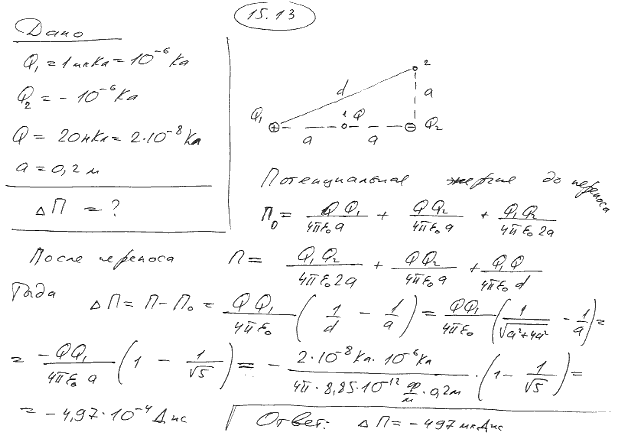 15.13
Дано
Q₁ = 1мкКл = 10⁻⁶ Кл
Q₂ = - 10⁻⁶ Кл
Q = 20нКл = 2·10⁻⁸ Кл
a = 0,2 м
ΔП = ?
2
d
a
Q₁ 1 Q Q₂
a a
Потенциальная энергия до переноса
П₀ = QQ₁/4πε₀a + QQ₂/4πε₀a + Q₁Q₂/4πε₀2a
После переноса П = Q₁Q₂/4πε₀2a + QQ₂/4πε₀a + Q₁Q/4πε₀d
Тогда ΔП = П - П₀ = QQ₁/4πε₀ (1/d - 1/a) = QQ₁/4πε₀ (1/√(a²+4a²) - 1/a) =
= -QQ₁/4πε₀a (1 - 1/√5) = - 2·10⁻⁸Кл·10⁻⁶Кл/4π·8,85·10⁻¹² ф/м·0,2м · (1 - 1/√5) =
= -4,97·10⁻⁴ Дж
Ответ: ΔП = - 497 мкДж